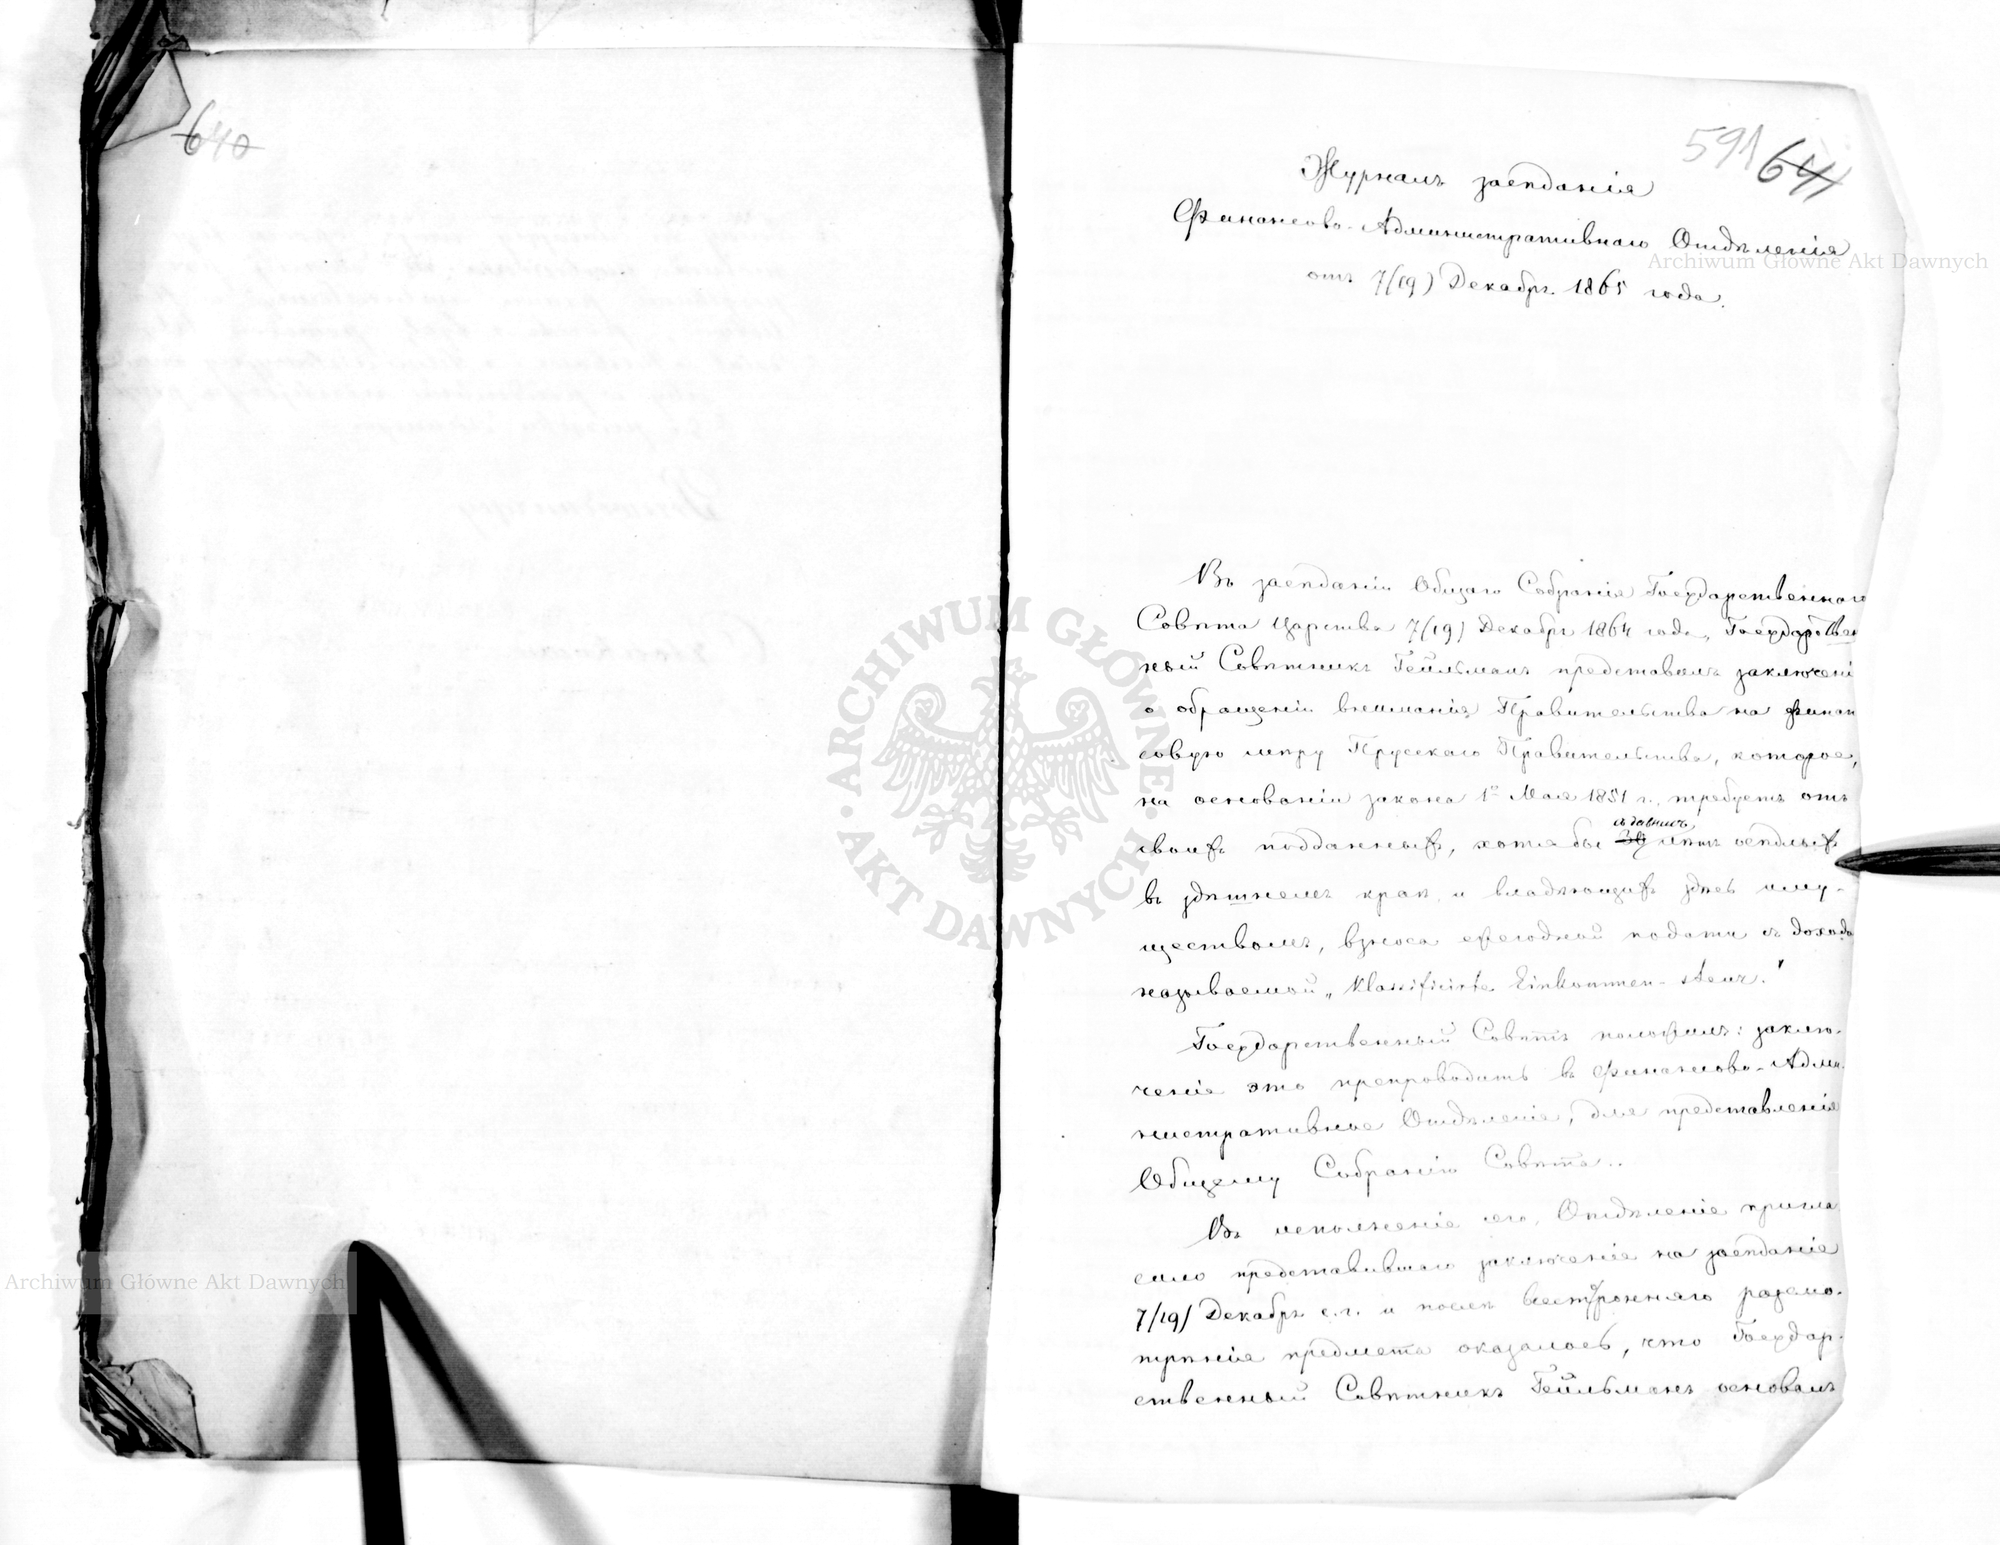 640
591 641
Журналъ засѣданія
Финансово-Административнаго Отдѣленія
отъ 7/19) Декабря 1865 года.
Въ засѣданіи Общаго Собранія Государственнаго
Совѣта Царства 7/19) Декабря 1864 года, Государствен
ный Совѣтникъ Гейльманъ представилъ заключені
о обращеніи вниманія Правительства на финан
совую мѣру Прусскаго Правительства, которое,
на основаніи закона 1го Мая 1851 г., требуетъ отъ
своихъ подданныхъ, хотя бы съ давнихъ лѣтъ осѣдлых
въ здѣшнемъ краѣ и владѣющихъ здѣсь иму-
ществомъ, взноса ежегодной подати съ дохода
называемой „Klassificirte Einkommen-steur."
Государственный Совѣтъ положилъ: заклю-
ченіе это препроводить въ Финансово-Адми-
нистративное Отдѣленіе, для представленія
Общему Собранію Совѣта..
Въ исполненіе его, Отдѣленіе пригла
сило представившаго заключеніе на засѣданіе
7/19) Декабря с.г. и послѣ всесторонняго разсмо-
трѣнія предмета оказалось, что Государ-
ственный Совѣтникъ Гейльманъ основалъ
Archiwum Główne Akt Dawnych
Archiwum Główne Akt Dawnych
ARCHIWUM GŁÓWNE · AKT DAWNYCH ·